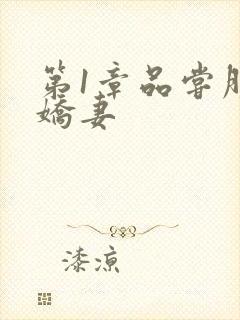 第1章品尝胖
娇妻
漆凉